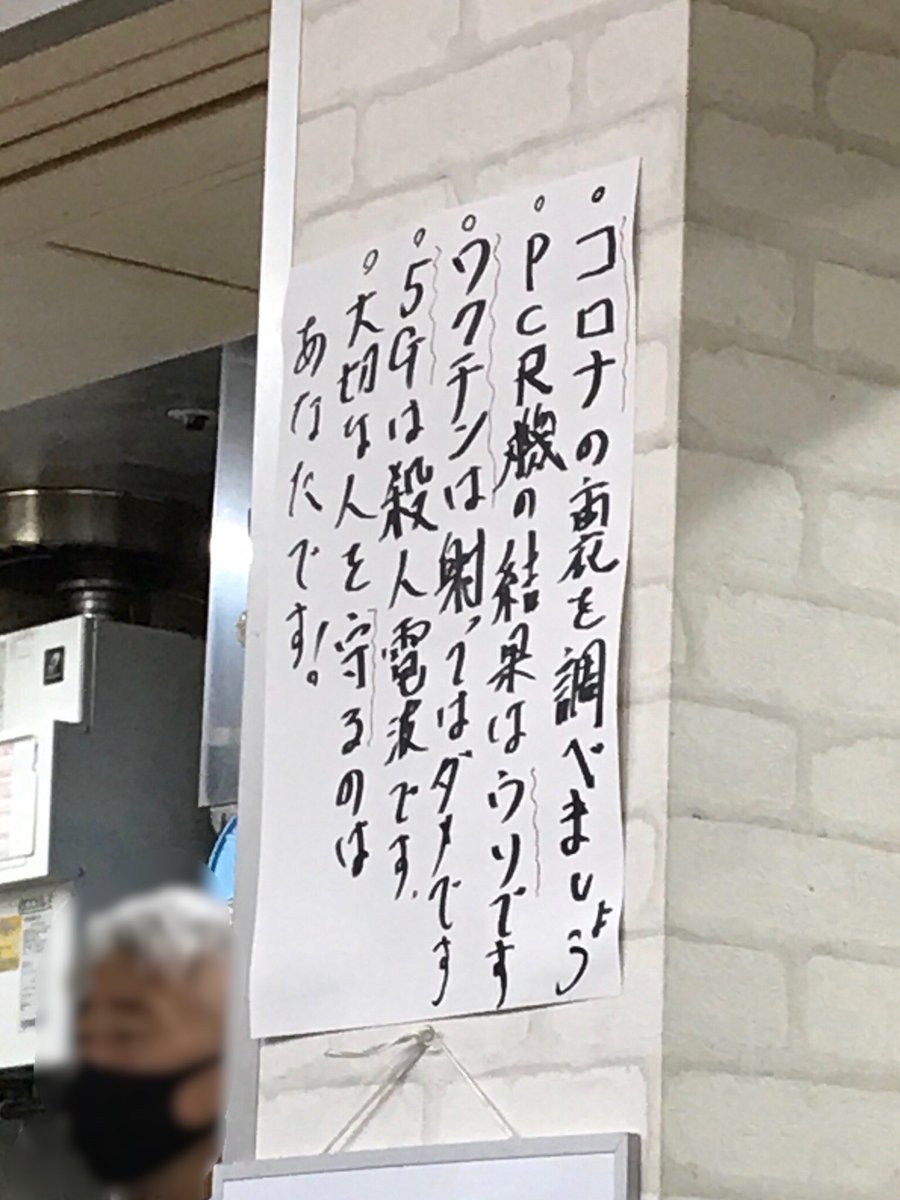 ○コロナの裏を調べましょう
○PCR機の結果はウソです
○ワクチンは射ってはダメです
○5Gは殺人電波です.
○大切な人を守るのは
あなたです!。